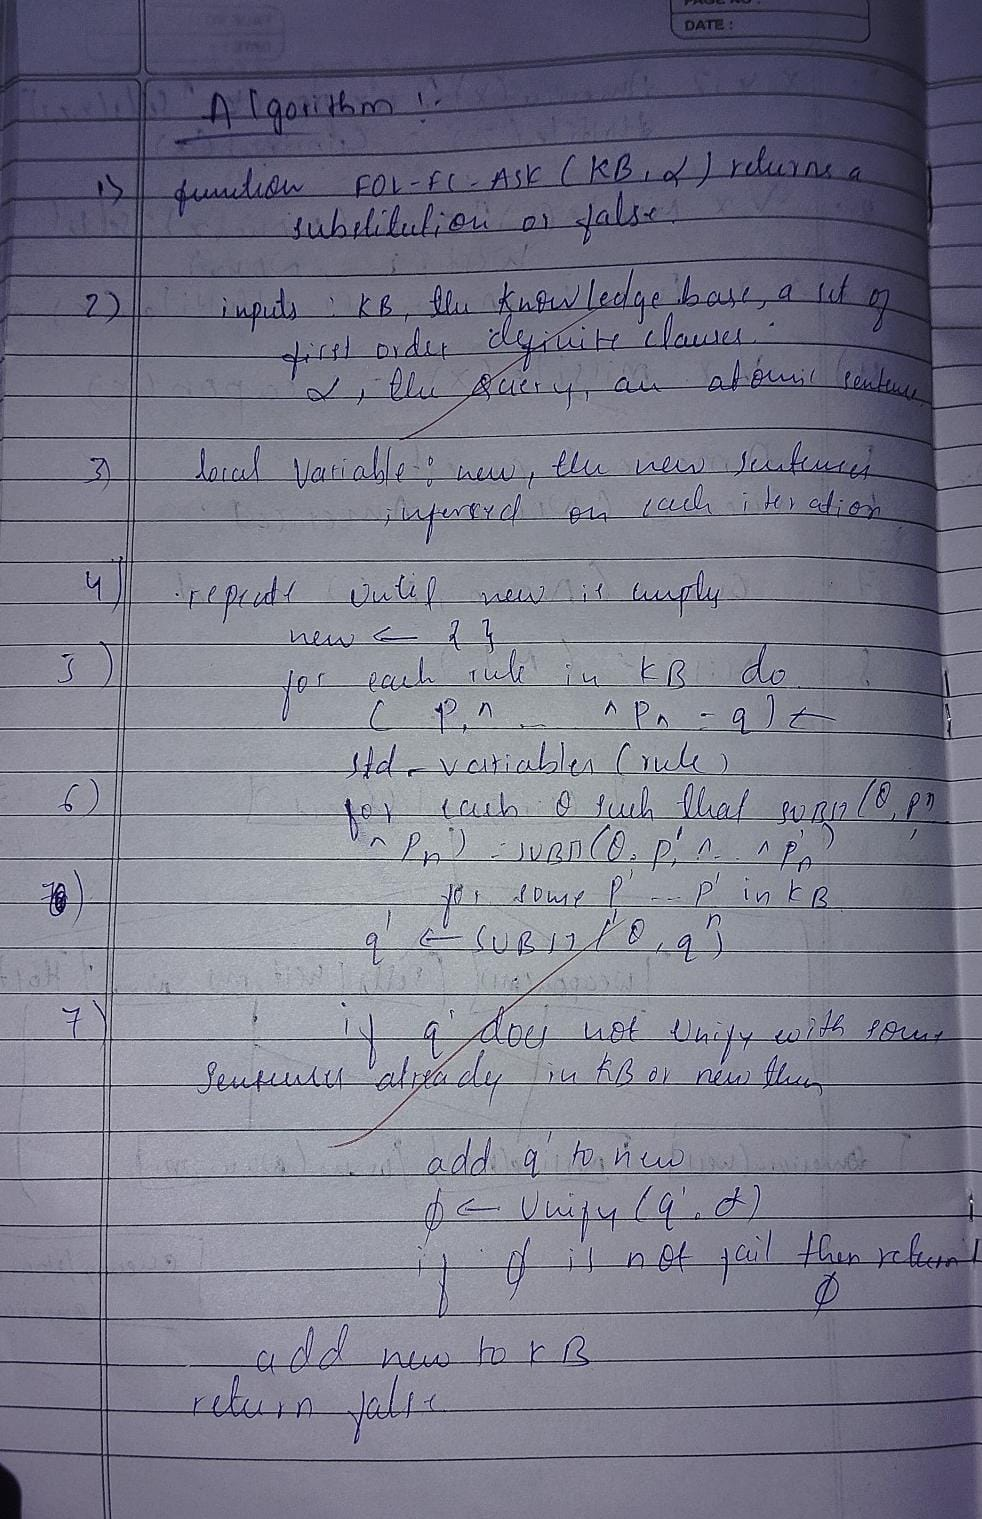 PAGE NO :
DATE :
Algorithm :-
1) function FOL-FC-ASK (KB, α) returns a
substitution or false.
2) inputs : KB, the knowledge base, a set of
first order definite clauses.
α, the query, an atomic sentence
3) local Variable : new, the new sentences
infererd on each iteration
4) repeat until new is empty
new ← { }
5) for each rule in KB do
( P, ^ _ ^ Pn = q ) ←
std - variables (rule)
6) for each θ such that SUBST (θ, p^
^ Pn) = SUBST (θ, p' ^ .. ^ p'n)
for some p' --- p' in KB
q' ← SUBST (θ, q)
7) if q' does not unify with some
sentence already in KB or new then
add q' to new
φ ← Unify (q', α)
if φ is not fail then return
φ
add new to KB
return false